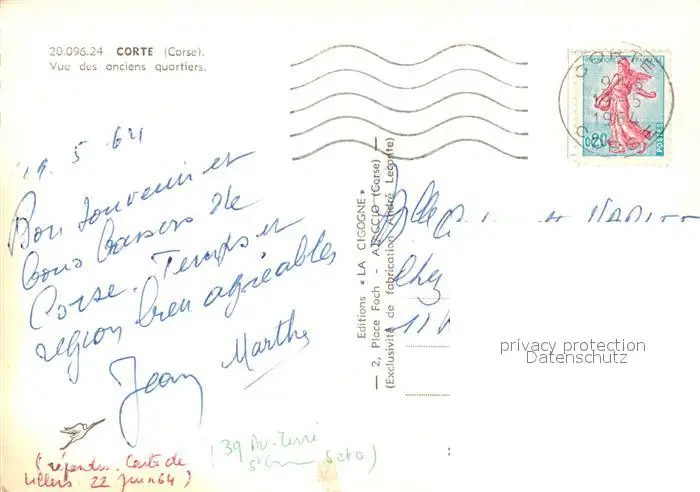 20.096.24 CORTE (Corse).
Vue des anciens quartiers.
19. 5 64
Bon souvenir et
bons baisers de
Corse. Temps et
région bien agréables
Jean Marthe
(répondu. Carte de
Villers 22 Juin 64)
(39 Av.
Editions « LA CIGOGNE »
— 2, Place Foch - AJACCIO (Corse) —
(Exclusivité de fabrication André Leconte)
CORTE
1964
CORSE
REPUBLIQUE FRANÇAISE
0,20
POSTES
Chez
11
privacy protection
Datenschutz